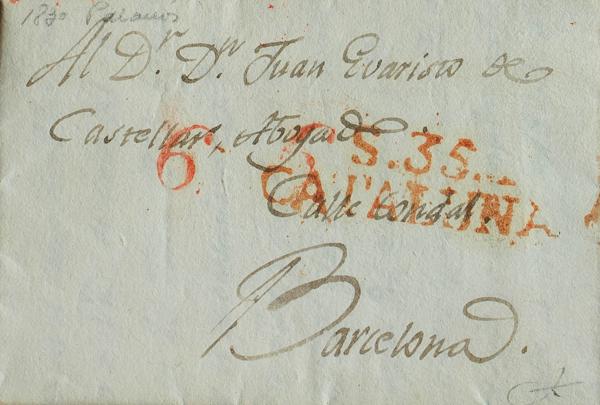 1830 Palamós
Al Dr. Dn. Juan Evaristo de
Castellar, Abogado.
6 S. 35.
CATALUNA
Calle Condal.
Barcelona.